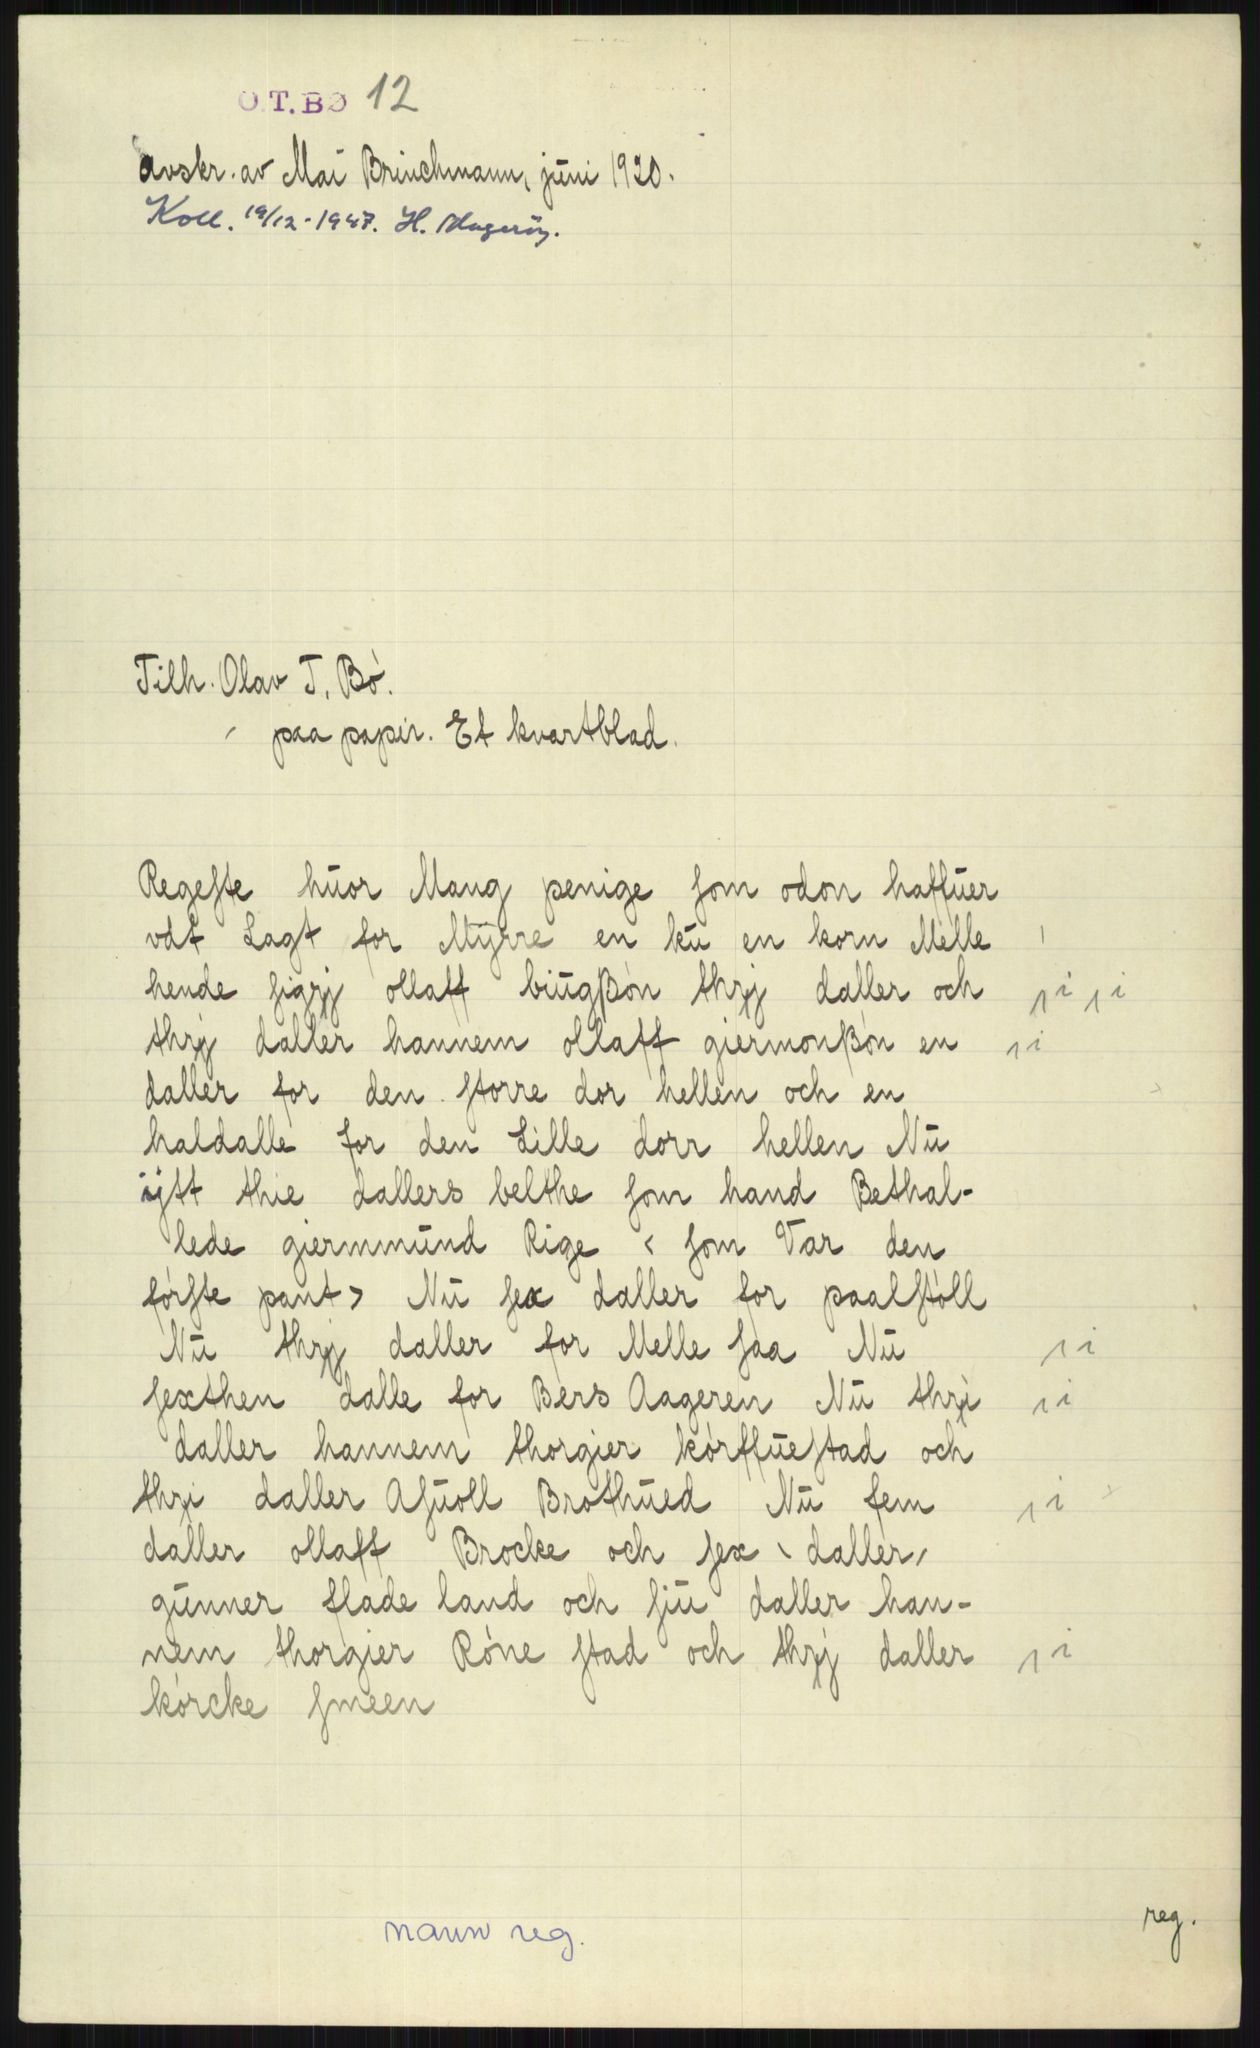 O.T.BØ 12
Avskr. av Mai Brinchmann, juni 1920.
Koll. 19/12-1947. H. Magerøy.
Tilh. Olav T. Bó.
paa papir. Et kvartblad.
Regeſte huor Mang penige ſom odon haffuer
vdt Lagt for Mÿrre en kū en korn Melle
hende ſigrj ollaff biūgßón thrj daller och ji ji
thrj daller hannem ollaff giermonßón en ji
daller for den ſtorre dor hellen och en
haldalle for den Lille dorr hellen Nū
ijtt thie dallers belthe ſom hand Bethal-
lede giermmūnd Rige < ſom Var den
fórſte pant> Nū ſex daller for paalſtóll
Nū thrj daller for Melle ſaa Nū ji
ſexthen dalle for Bers Aageren Nū thrj ji
daller hannem thorgier kórffūeſtad och
thrj daller Aſuoll Brothūed Nū fem ji
daller ollaff Brocke och ſex daller
gūnner flade land och ſiū daller han-
nem thorgier Róne ſtad och thrj daller ji
kórcke ſmeen
reg.
navn reg.